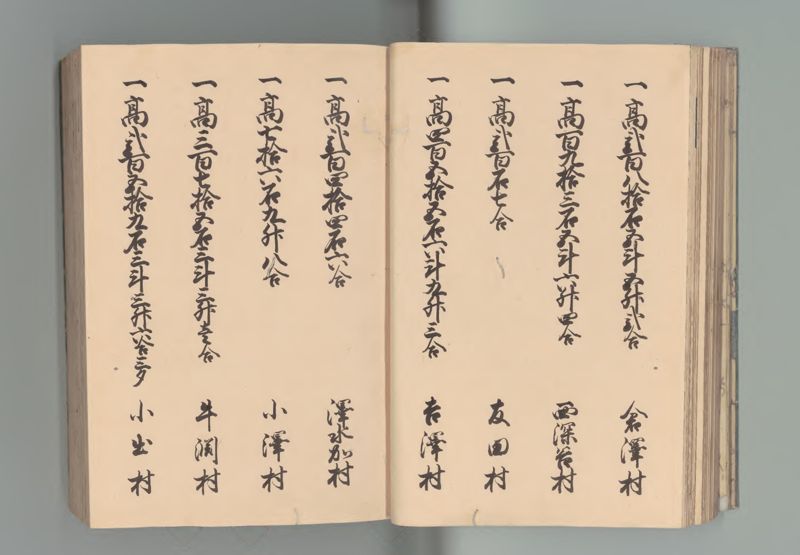 一高弐百八拾石五斗五升弐合 倉澤村
一高百九拾三石五斗六升四合 西深谷村
一高弐百石七合 友田村
一高四百五拾五石六斗九升三合 吉澤村
一高弐百四拾四石六合 澤水加村
一高七拾六石九升八合 小澤村
一高三百七拾五石三斗三升壱合 牛渕村
一高弐百五拾九石三斗三升六合三夕 小出村